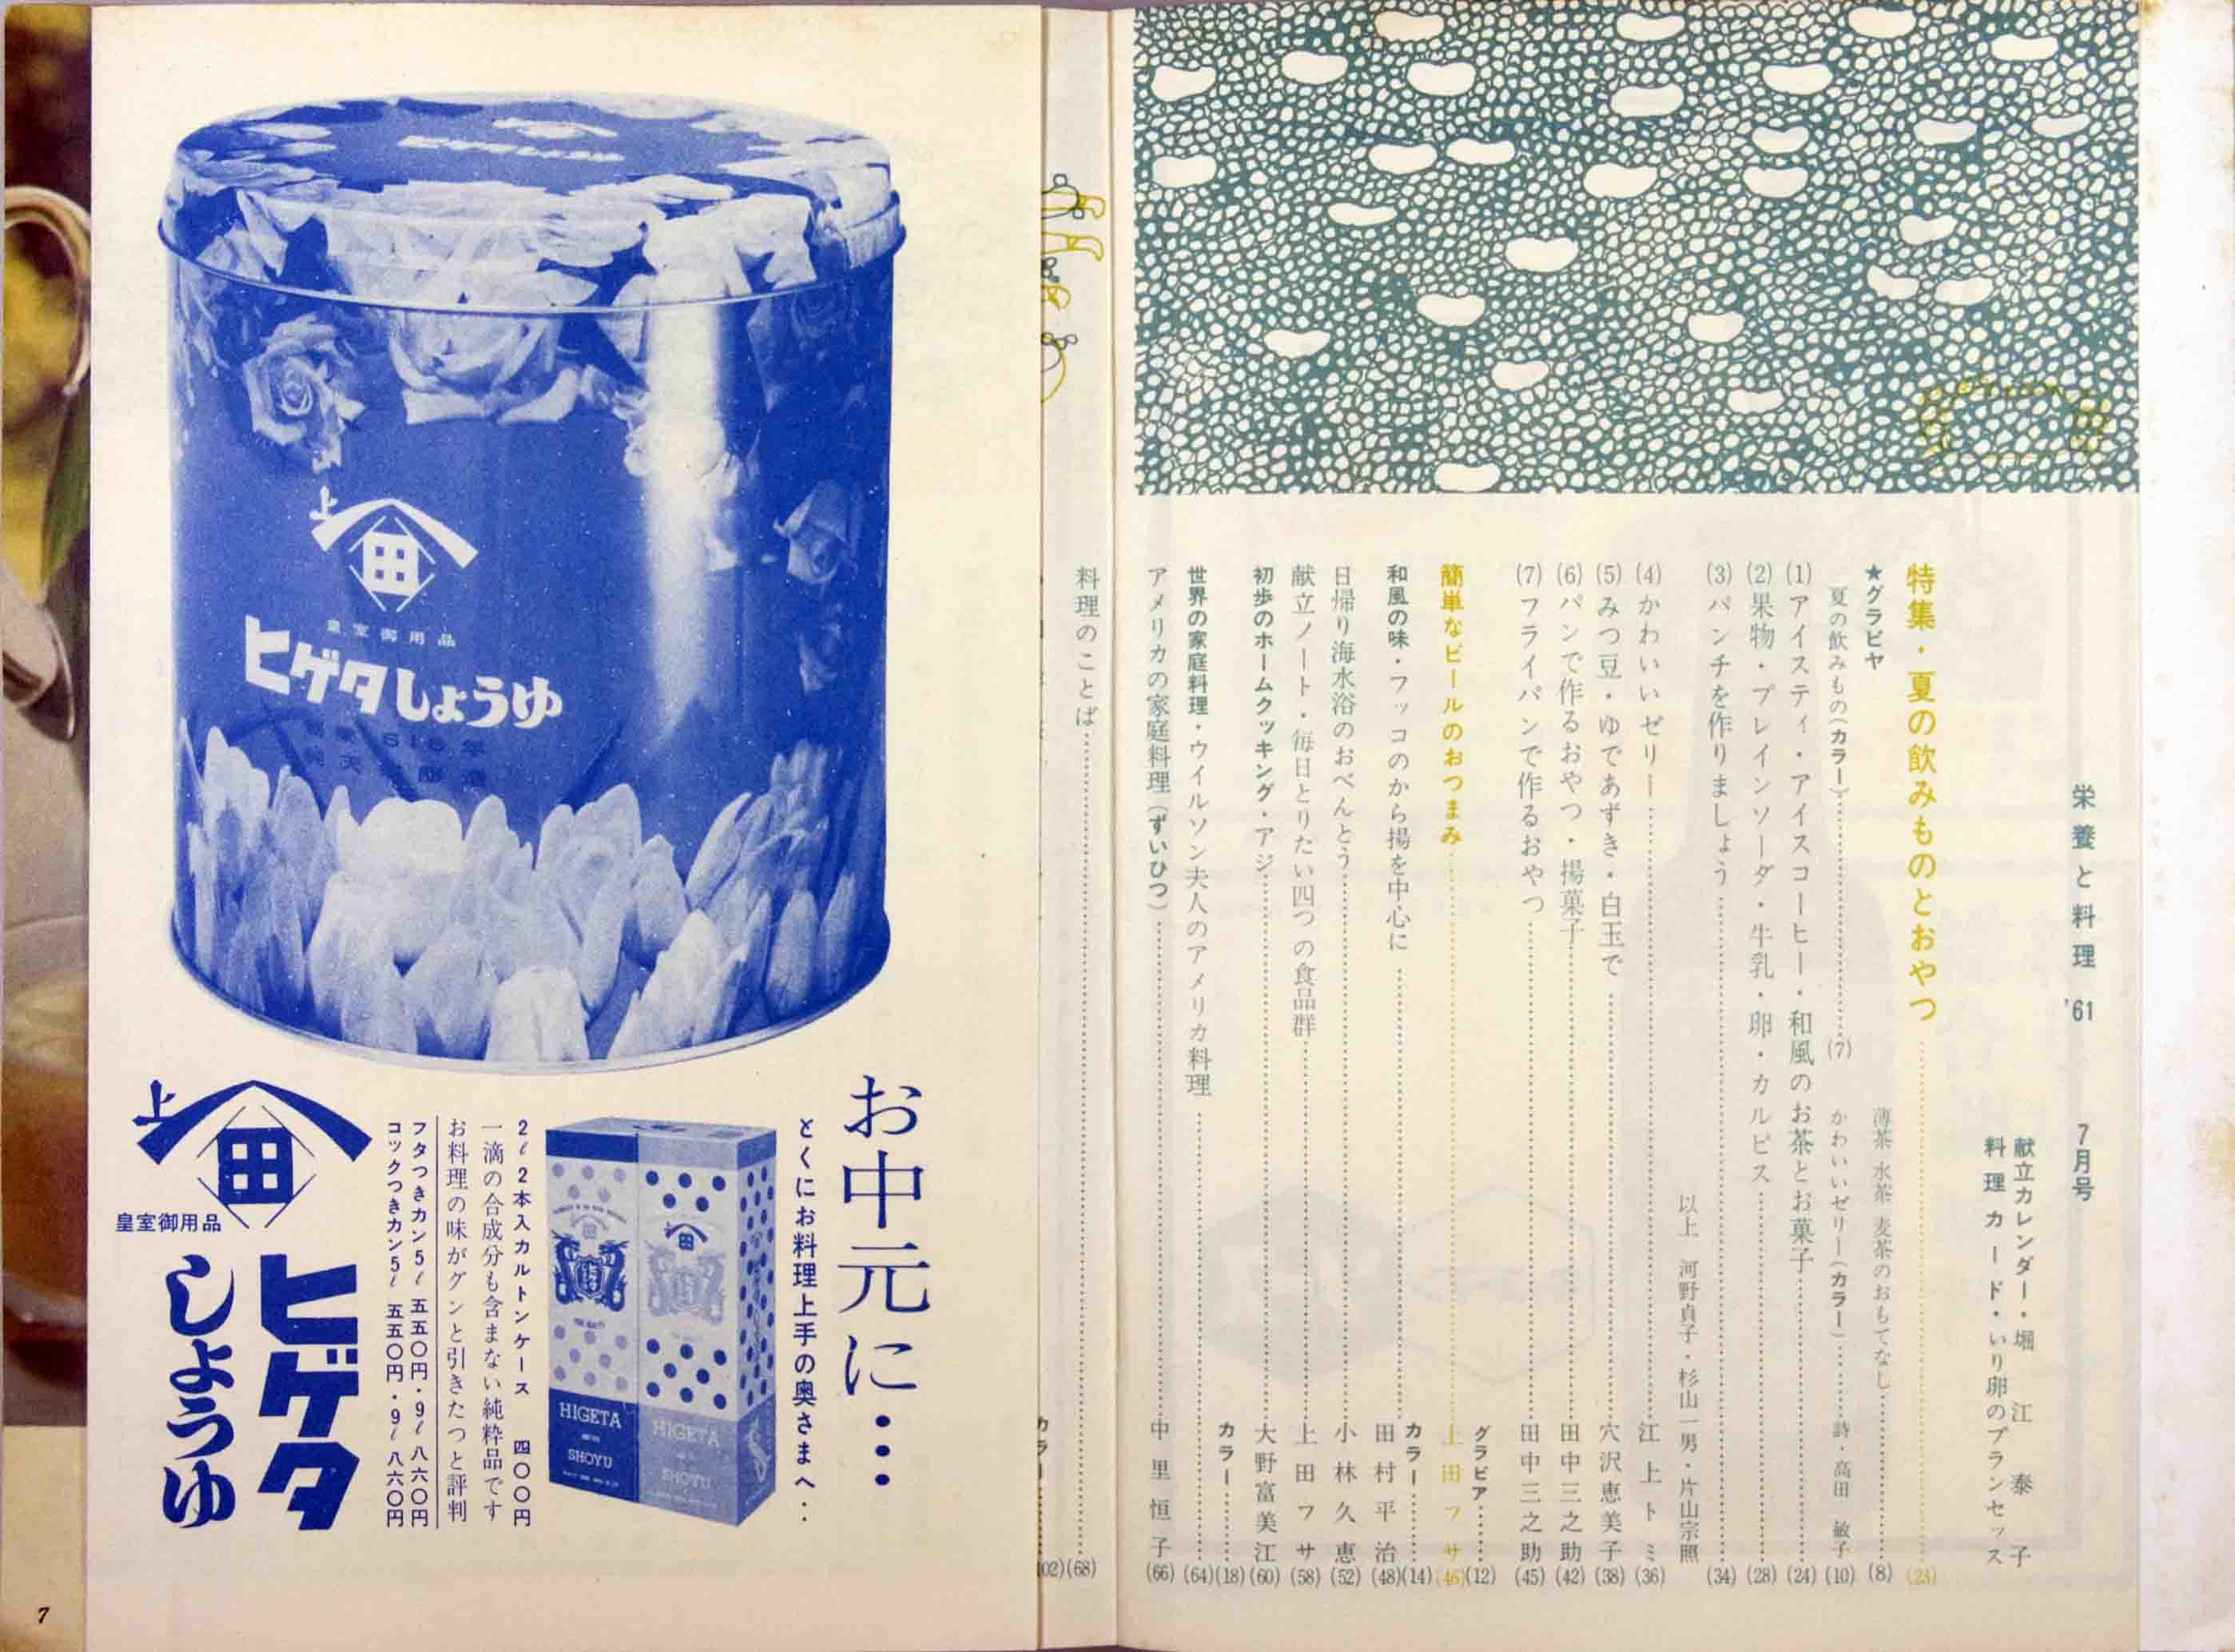 栄養と料理 '61 7月号
献立カレンダー・堀江泰子
料理カード・いり卵のプランセッス
特集・夏の飲みものとおやつ……(23)
★グラビヤ
薄茶 水茶 麦茶のおもてなし……(8)
夏の飲みもの(カラー)……(7)
かわいいゼリー(カラー)……詩・高田敏子(10)
(1)アイスティ・アイスコーヒー・和風のお茶とお菓子……(24)
(2)果物・プレインソーダ・牛乳・卵・カルピス……(28)
(3)パンチを作りましょう……(34)
以上 河野貞子・杉山一男・片山宗照
(4)かわいいゼリー……江上トミ(36)
(5)みつ豆・ゆであずき・白玉で……穴沢恵美子(38)
(6)パンで作るおやつ・揚菓子……田中三之助(42)
(7)フライパンで作るおやつ……田中三之助(45)
グラビア……(12)
簡単なビールのおつまみ……上田フサ(46)
カラー……(14)
和風の味・フッコのから揚を中心に……田村平治(48)
日帰り海水浴のおべんとう……小林久恵(52)
献立ノート・毎日とりたい四つの食品群……上田フサ(58)
初歩のホームクッキング・アジ……大野富美江(60)
カラー……(18)
世界の家庭料理・ウイルソン夫人のアメリカ料理……(64)
アメリカの家庭料理(ずいひつ)……中里恒子(66)
料理のことば……(68)
カラー……
02)
ヒゲタしょうゆ
上
田
皇室御用品
ヒゲタしょうゆ
お中元に…
とくにお料理上手の奥さまへ‥
HIGETA
SHOYU
HIGETA
SHOYU
2ℓ2本入カルトンケース 四〇〇円
一滴の合成分も含まない純粋品です
お料理の味がグンと引きたつと評判
フタつきカン5ℓ 五五〇円・9ℓ 八六〇円
コックつきカン5ℓ 五五〇円・9ℓ 八六〇円
上
田
皇室御用品
ヒゲタ
しょうゆ
7